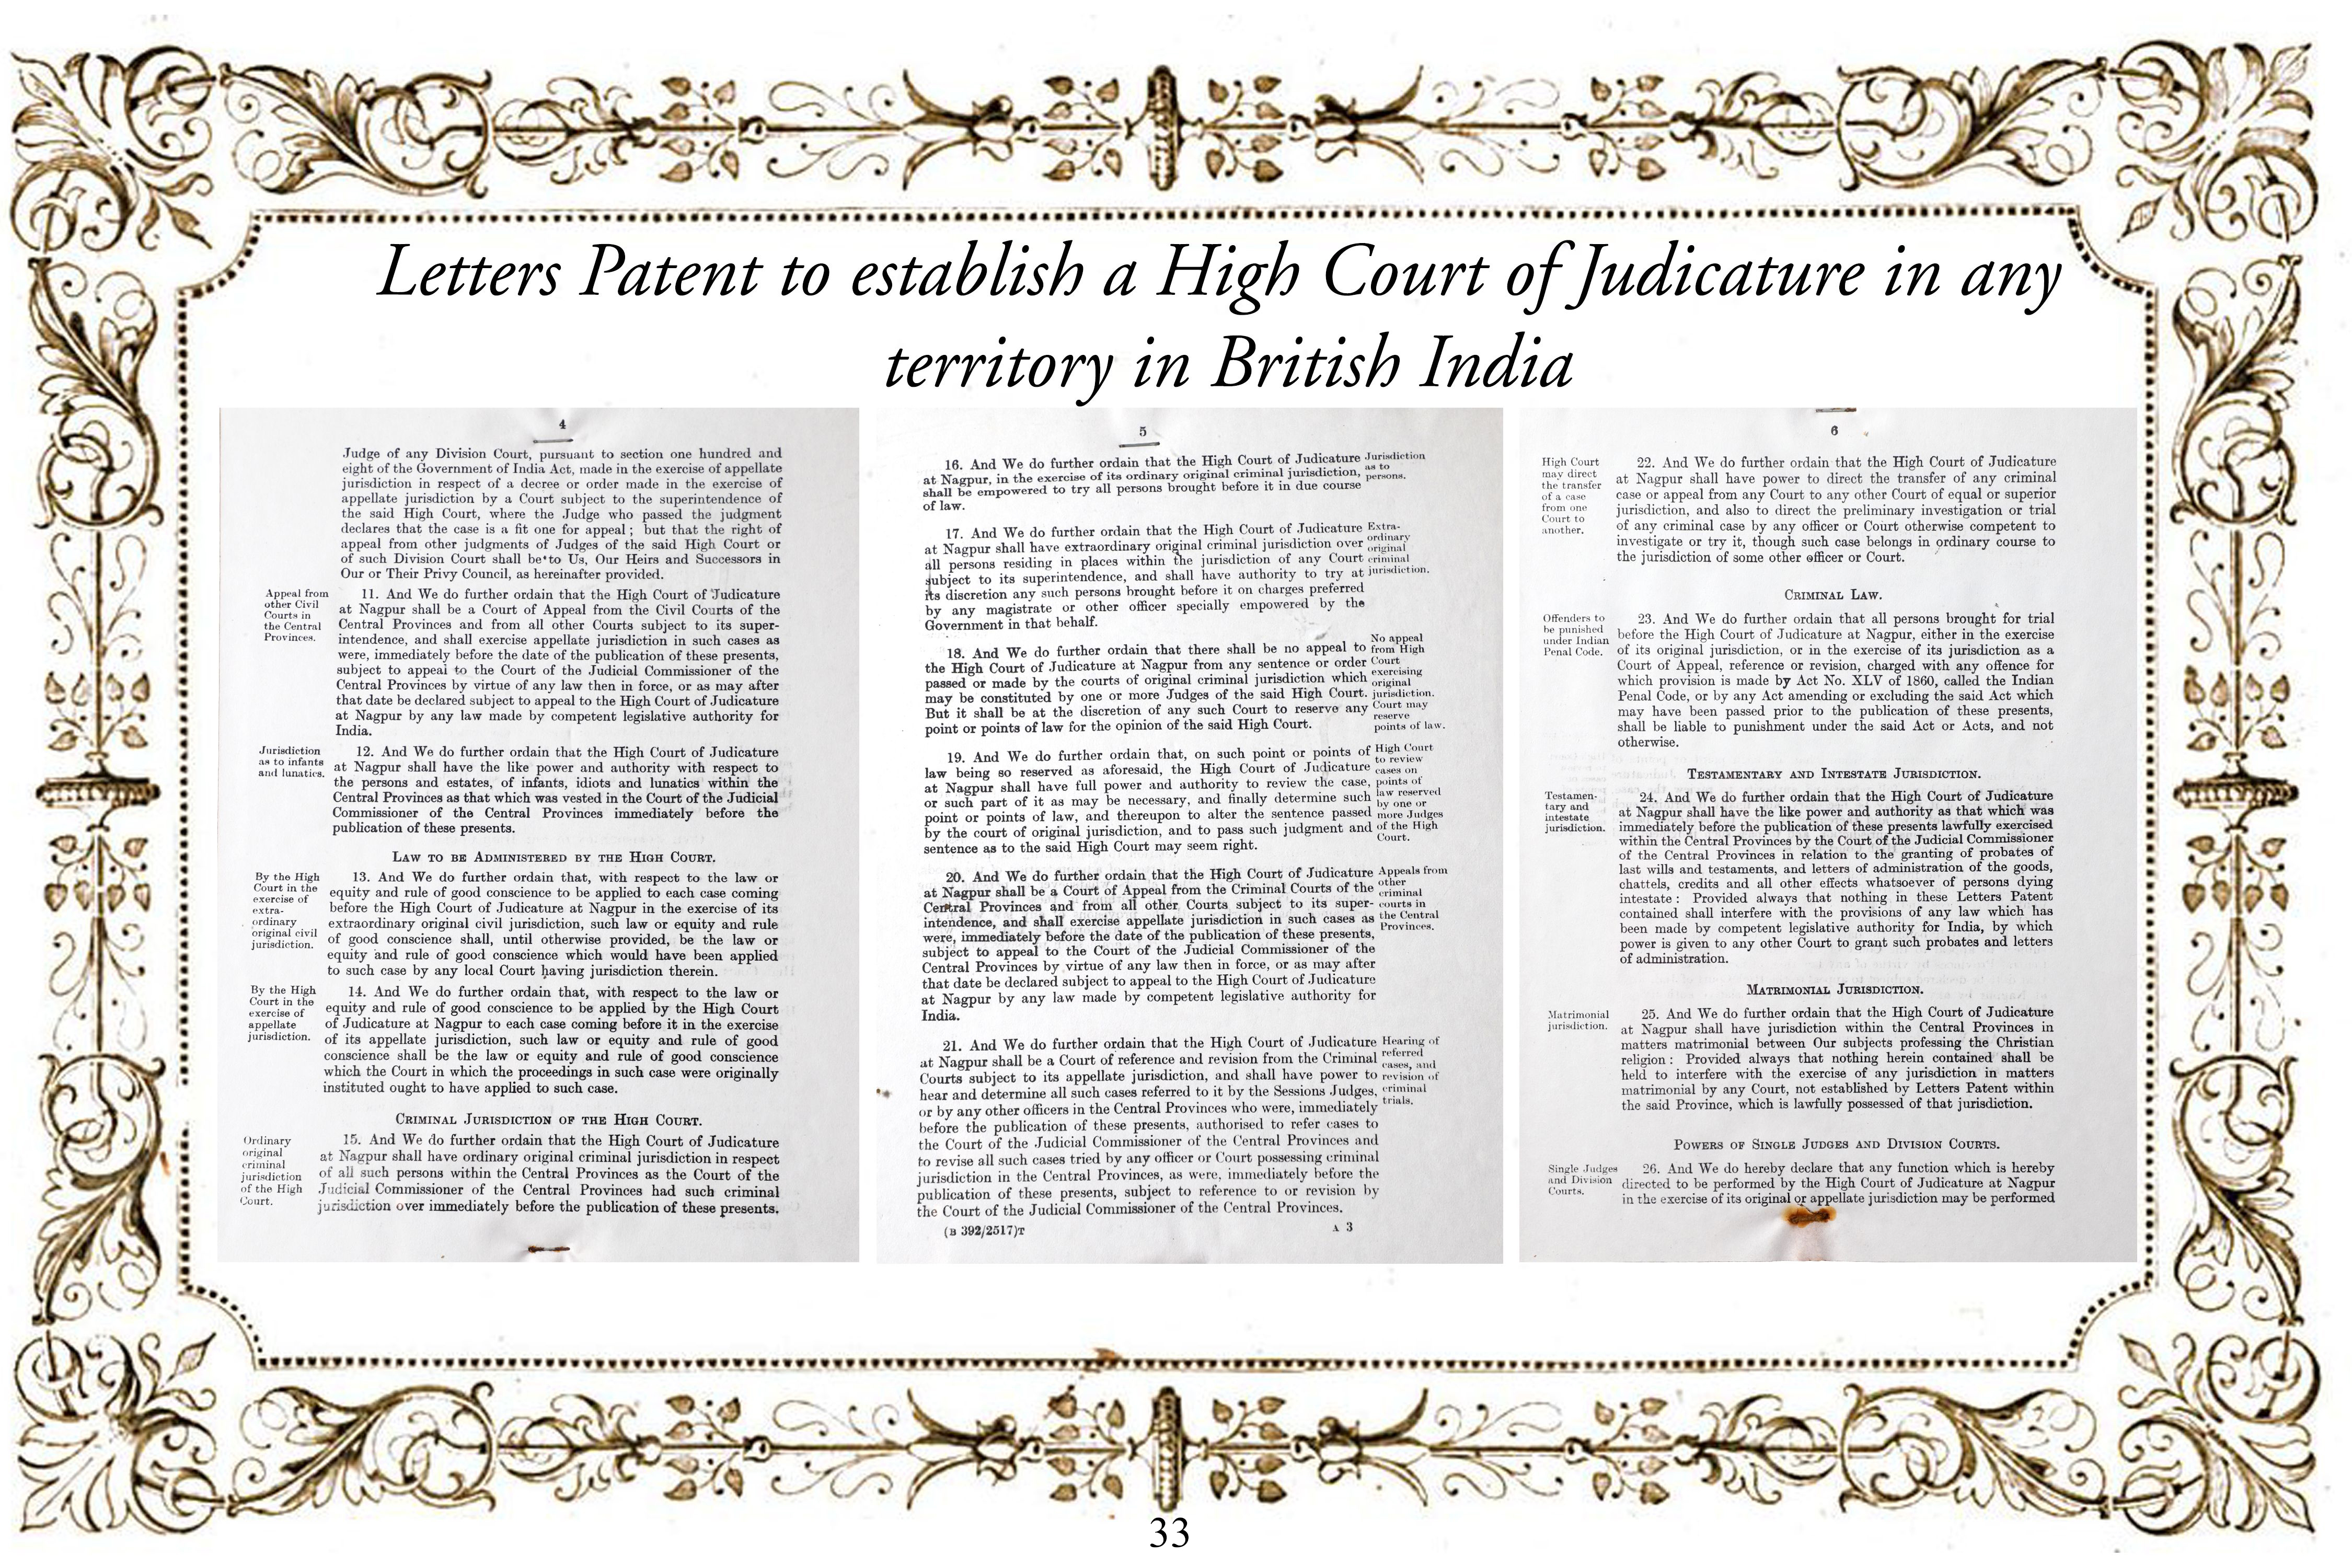 Letters Patent to establish a High Court of Judicature in any
territory in British India
4
Judge of any Division Court, pursuant to section one hundred and
eight of the Government of India Act, made in the exercise of appellate
jurisdiction in respect of a decree or order made in the exercise of
appellate jurisdiction by a Court subject to the superintendence of
the said High Court, where the Judge who passed the judgment
declares that the case is a fit one for appeal; but that the right of
appeal from other judgments of Judges of the said High Court or
of such Division Court shall be to Us, Our Heirs and Successors in
Our or Their Privy Council, as hereinafter provided.
Appeal from
other Civil
Courts in
the Central
Provinces.
11. And We do further ordain that the High Court of Judicature
at Nagpur shall be a Court of Appeal from the Civil Courts of the
Central Provinces and from all other Courts subject to its super-
intendence, and shall exercise appellate jurisdiction in such cases as
were, immediately before the date of the publication of these presents,
subject to appeal to the Court of the Judicial Commissioner of the
Central Provinces by virtue of any law then in force, or as may after
that date be declared subject to appeal to the High Court of Judicature
at Nagpur by any law made by competent legislative authority for
India.
Jurisdiction
as to infants
and lunatics.
12. And We do further ordain that the High Court of Judicature
at Nagpur shall have the like power and authority with respect to
the persons and estates, of infants, idiots and lunatics within the
Central Provinces as that which was vested in the Court of the Judicial
Commissioner of the Central Provinces immediately before the
publication of these presents.
LAW TO BE ADMINISTERED BY THE HIGH COURT.
By the High
Court in the
exercise of
extra-
ordinary
original civil
jurisdiction.
13. And We do further ordain that, with respect to the law or
equity and rule of good conscience to be applied to each case coming
before the High Court of Judicature at Nagpur in the exercise of its
extraordinary original civil jurisdiction, such law or equity and rule
of good conscience shall, until otherwise provided, be the law or
equity and rule of good conscience which would have been applied
to such case by any local Court having jurisdiction therein.
By the High
Court in the
exercise of
appellate
jurisdiction.
14. And We do further ordain that, with respect to the law or
equity and rule of good conscience to be applied by the High Court
of Judicature at Nagpur to each case coming before it in the exercise
of its appellate jurisdiction, such law or equity and rule of good
conscience shall be the law or equity and rule of good conscience
which the Court in which the proceedings in such case were originally
instituted ought to have applied to such case.
CRIMINAL JURISDICTION OF THE HIGH COURT.
Ordinary
original
criminal
jurisdiction
of the High
Court.
15. And We do further ordain that the High Court of Judicature
at Nagpur shall have ordinary original criminal jurisdiction in respect
of all such persons within the Central Provinces as the Court of the
Judicial Commissioner of the Central Provinces had such criminal
jurisdiction over immediately before the publication of these presents.
5
16. And We do further ordain that the High Court of Judicature
at Nagpur, in the exercise of its ordinary original criminal jurisdiction,
shall be empowered to try all persons brought before it in due course
of law.
Jurisdiction
as to
persons.
17. And We do further ordain that the High Court of Judicature
at Nagpur shall have extraordinary original criminal jurisdiction over
all persons residing in places within the jurisdiction of any Court
subject to its superintendence, and shall have authority to try at
its discretion any such persons brought before it on charges preferred
by any magistrate or other officer specially empowered by the
Government in that behalf.
Extra-
ordinary
original
criminal
jurisdiction.
18. And We do further ordain that there shall be no appeal to
the High Court of Judicature at Nagpur from any sentence or order
passed or made by the courts of original criminal jurisdiction which
may be constituted by one or more Judges of the said High Court.
But it shall be at the discretion of any such Court to reserve any
point or points of law for the opinion of the said High Court.
No appeal
from High
Court
exercising
original
jurisdiction.
Court may
reserve
points of law.
19. And We do further ordain that, on such point or points of
law being so reserved as aforesaid, the High Court of Judicature
at Nagpur shall have full power and authority to review the case,
or such part of it as may be necessary, and finally determine such
point or points of law, and thereupon to alter the sentence passed
by the court of original jurisdiction, and to pass such judgment and
sentence as to the said High Court may seem right.
High Court
to review
cases on
points of
law reserved
by one or
more Judges
of the High
Court.
20. And We do further ordain that the High Court of Judicature
at Nagpur shall be a Court of Appeal from the Criminal Courts of the
Central Provinces and from all other Courts subject to its super-
intendence, and shall exercise appellate jurisdiction in such cases as
were, immediately before the date of the publication of these presents,
subject to appeal to the Court of the Judicial Commissioner of the
Central Provinces by virtue of any law then in force, or as may after
that date be declared subject to appeal to the High Court of Judicature
at Nagpur by any law made by competent legislative authority for
India.
Appeals from
other
criminal
courts in
the Central
Provinces.
21. And We do further ordain that the High Court of Judicature
at Nagpur shall be a Court of reference and revision from the Criminal
Courts subject to its appellate jurisdiction, and shall have power to
hear and determine all such cases referred to it by the Sessions Judges,
or by any other officers in the Central Provinces who were, immediately
before the publication of these presents, authorised to refer cases to
the Court of the Judicial Commissioner of the Central Provinces and
to revise all such cases tried by any officer or Court possessing criminal
jurisdiction in the Central Provinces, as were, immediately before the
publication of these presents, subject to reference to or revision by
the Court of the Judicial Commissioner of the Central Provinces.
Hearing of
referred
cases, and
revision of
criminal
trials.
(B 392/2517)T
A 3
6
High Court
may direct
the transfer
of a case
from one
Court to
another.
22. And We do further ordain that the High Court of Judicature
at Nagpur shall have power to direct the transfer of any criminal
case or appeal from any Court to any other Court of equal or superior
jurisdiction, and also to direct the preliminary investigation or trial
of any criminal case by any officer or Court otherwise competent to
investigate or try it, though such case belongs in ordinary course to
the jurisdiction of some other officer or Court.
CRIMINAL LAW.
Offenders to
be punished
under Indian
Penal Code.
23. And We do further ordain that all persons brought for trial
before the High Court of Judicature at Nagpur, either in the exercise
of its original jurisdiction, or in the exercise of its jurisdiction as a
Court of Appeal, reference or revision, charged with any offence for
which provision is made by Act No. XLV of 1860, called the Indian
Penal Code, or by any Act amending or excluding the said Act which
may have been passed prior to the publication of these presents,
shall be liable to punishment under the said Act or Acts, and not
otherwise.
TESTAMENTARY AND INTESTATE JURISDICTION.
Testamen-
tary and
intestate
jurisdiction.
24. And We do further ordain that the High Court of Judicature
at Nagpur shall have the like power and authority as that which was
immediately before the publication of these presents lawfully exercised
within the Central Provinces by the Court of the Judicial Commissioner
of the Central Provinces in relation to the granting of probates of
last wills and testaments, and letters of administration of the goods,
chattels, credits and all other effects whatsoever of persons dying
intestate: Provided always that nothing in these Letters Patent
contained shall interfere with the provisions of any law which has
been made by competent legislative authority for India, by which
power is given to any other Court to grant such probates and letters
of administration.
MATRIMONIAL JURISDICTION.
Matrimonial
jurisdiction.
25. And We do further ordain that the High Court of Judicature
at Nagpur shall have jurisdiction within the Central Provinces in
matters matrimonial between Our subjects professing the Christian
religion: Provided always that nothing herein contained shall be
held to interfere with the exercise of any jurisdiction in matters
matrimonial by any Court, not established by Letters Patent within
the said Province, which is lawfully possessed of that jurisdiction.
POWERS OF SINGLE JUDGES AND DIVISION COURTS.
Single Judges
and Division
Courts.
26. And We do hereby declare that any function which is hereby
directed to be performed by the High Court of Judicature at Nagpur
in the exercise of its original or appellate jurisdiction may be performed
33